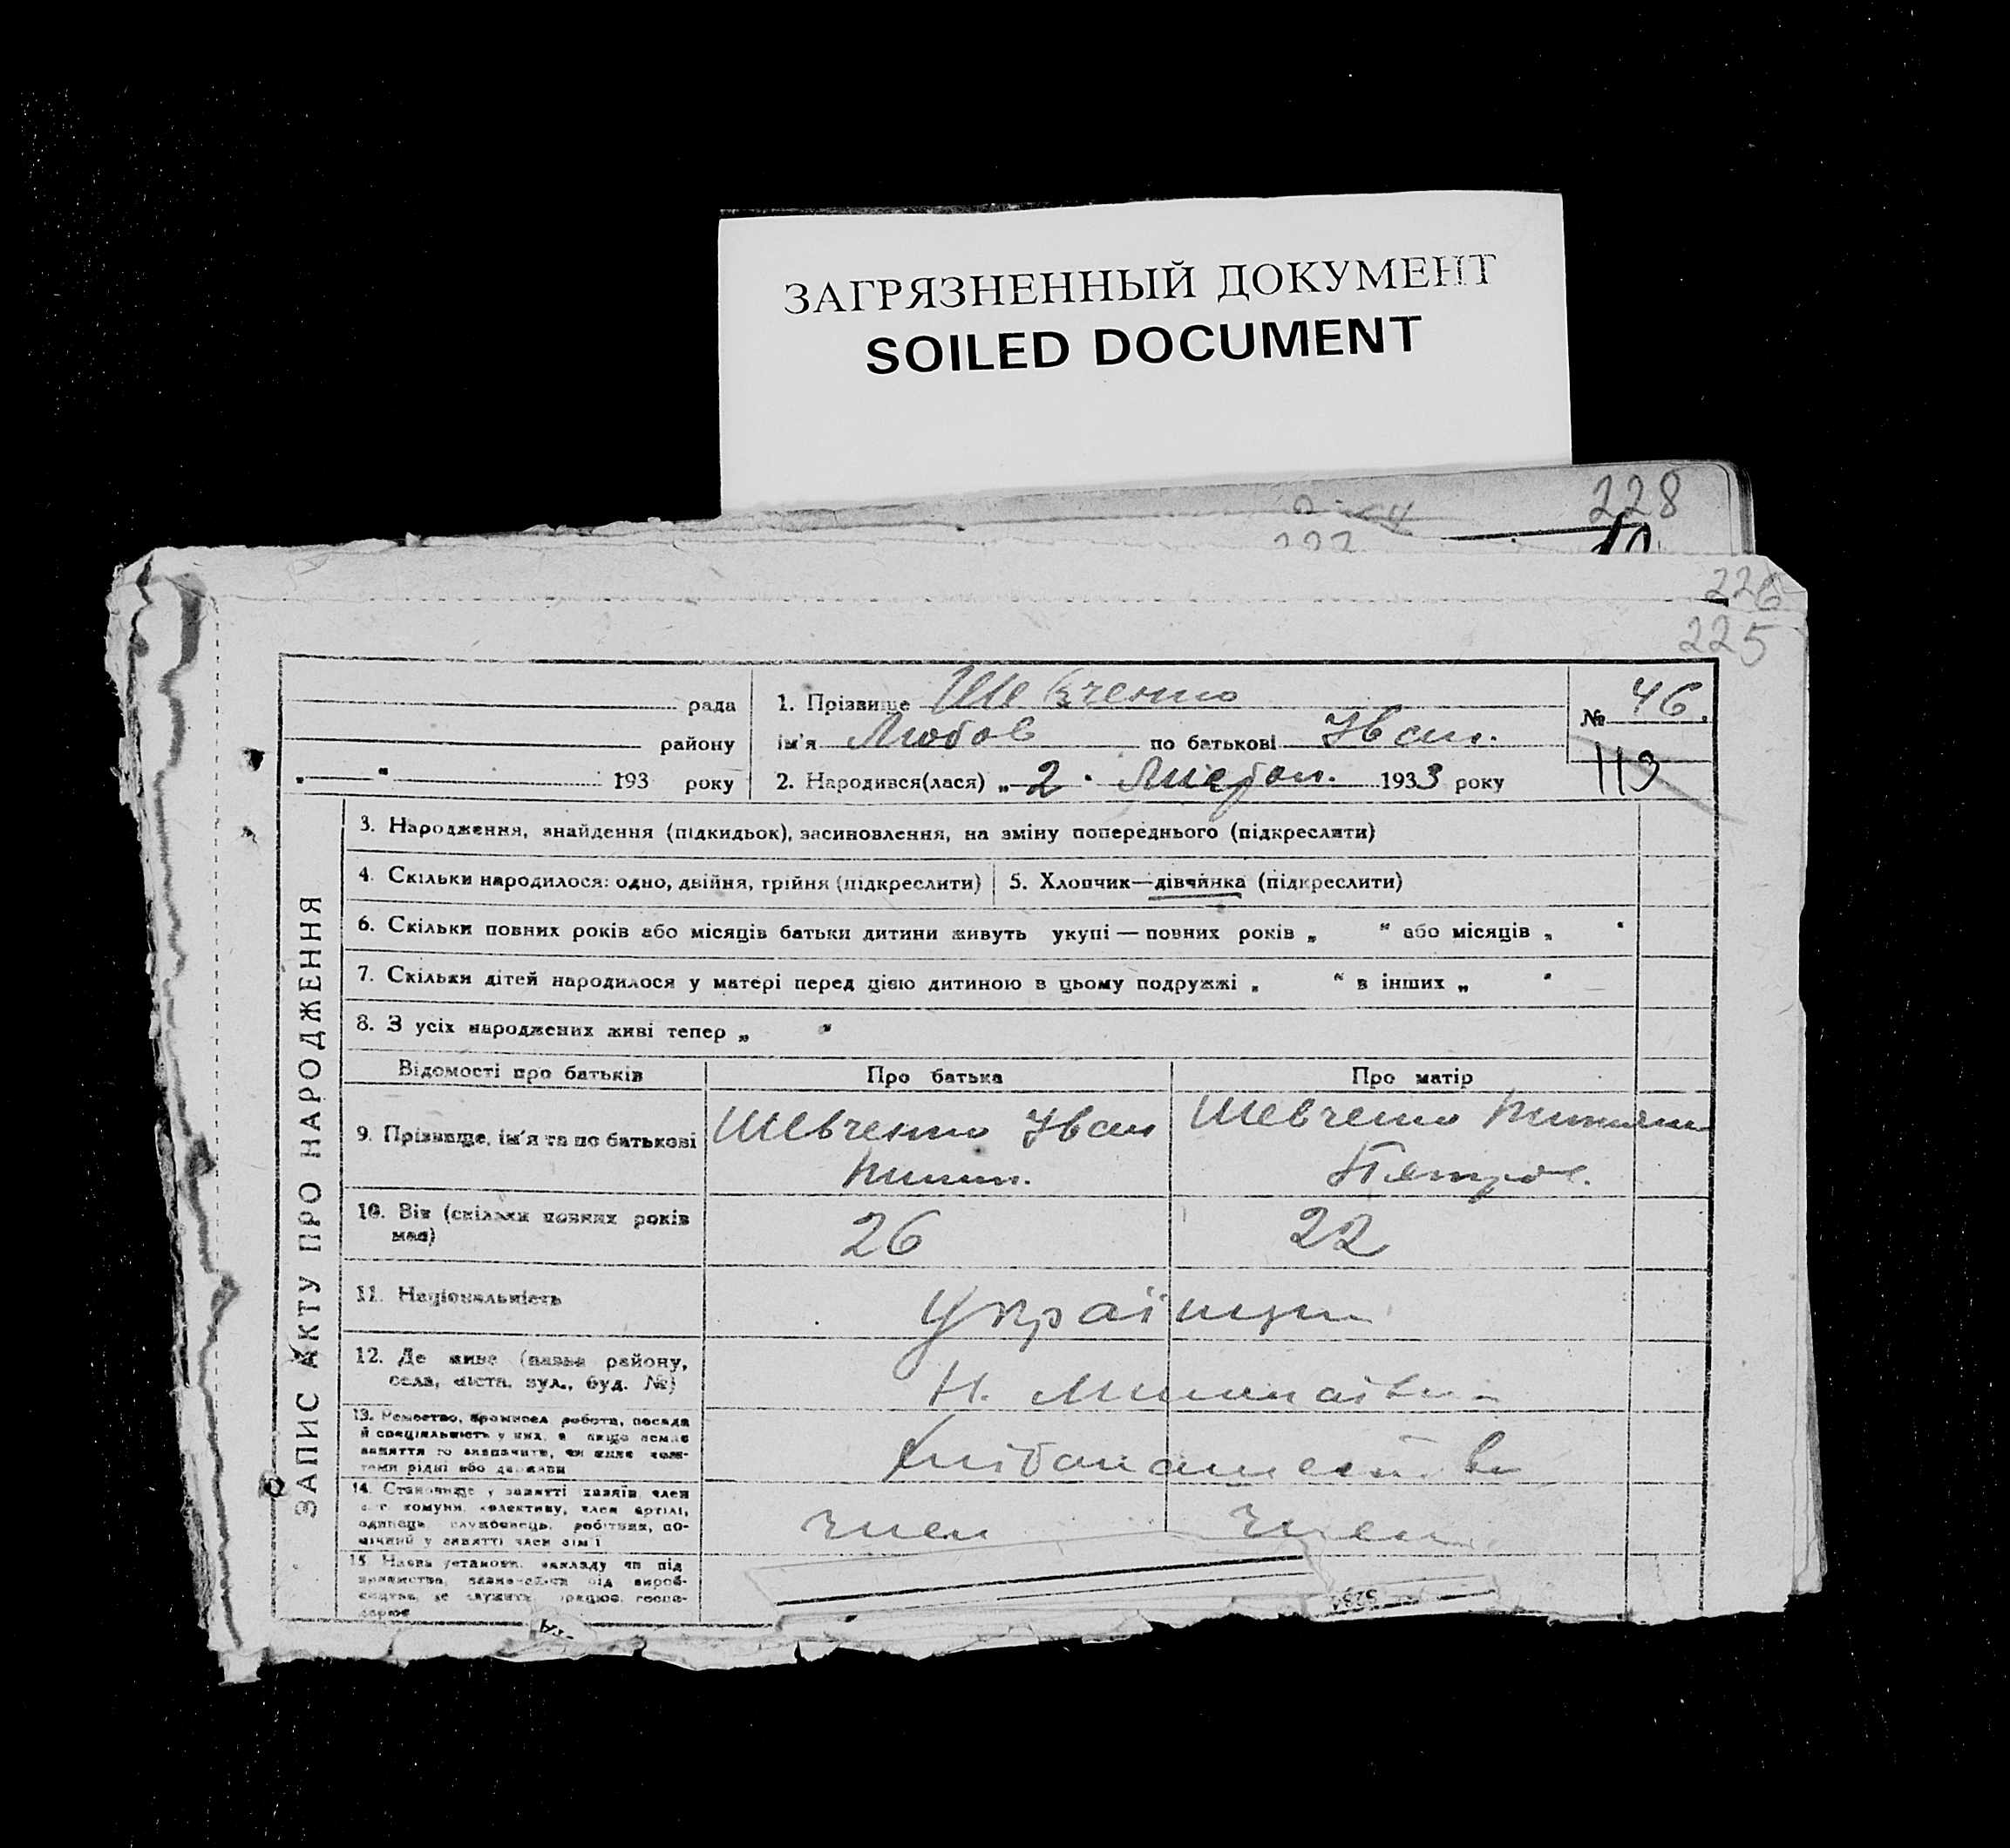 ЗАГРЯЗНЕННЫЙ ДОКУМЕНТ
SOILED DOCUMENT
228
226
225
рада
району
193 року
1. Прізвище Шевченко
ім'я Любов по батькові Іван.
2. Народився(лася) „ 2 " 1933 року
№ 46.
113
ЗАПИС АКТУ ПРО НАРОДЖЕННЯ
3. Народження, знайдення (підкидьок), засиновлення, на зміну попереднього (підкреслити)
4. Скільки народилося: одно, двійня, трійня (підкреслити)
5. Хлопчик—дівчинка (підкреслити)
6. Скільки повних років або місяців батьки дитини живуть укупі — повних років „ " або місяців „ "
7. Скільки дітей народилося у матері перед цією дитиною в цьому подружжі „ " в інших „ "
8. З усіх народжених живі тепер „ "
Відомості про батьків Про батька Про матір
9. Прізвище, ім'я та по батькові Шевченко Іван Шевченко
Петров.
10. Вік (скільки повних років 26 22
має)
11. Національність Українци
12. Де живе (назва району,
села, міста, вул., буд. №)
13. Ремество, промисел робота, посада
й спеціяльність у них, а якщо немає
заняття то зазначити, чи живе кош-
тами рідні або держави
14. Становище у занятті хазяїн, член
с.-г. комуни, колективу, член артілі, член член
одинець, службовець, робітник, по-
мічний у занятті член сім'ї
15. Назва установи, закладу чи під